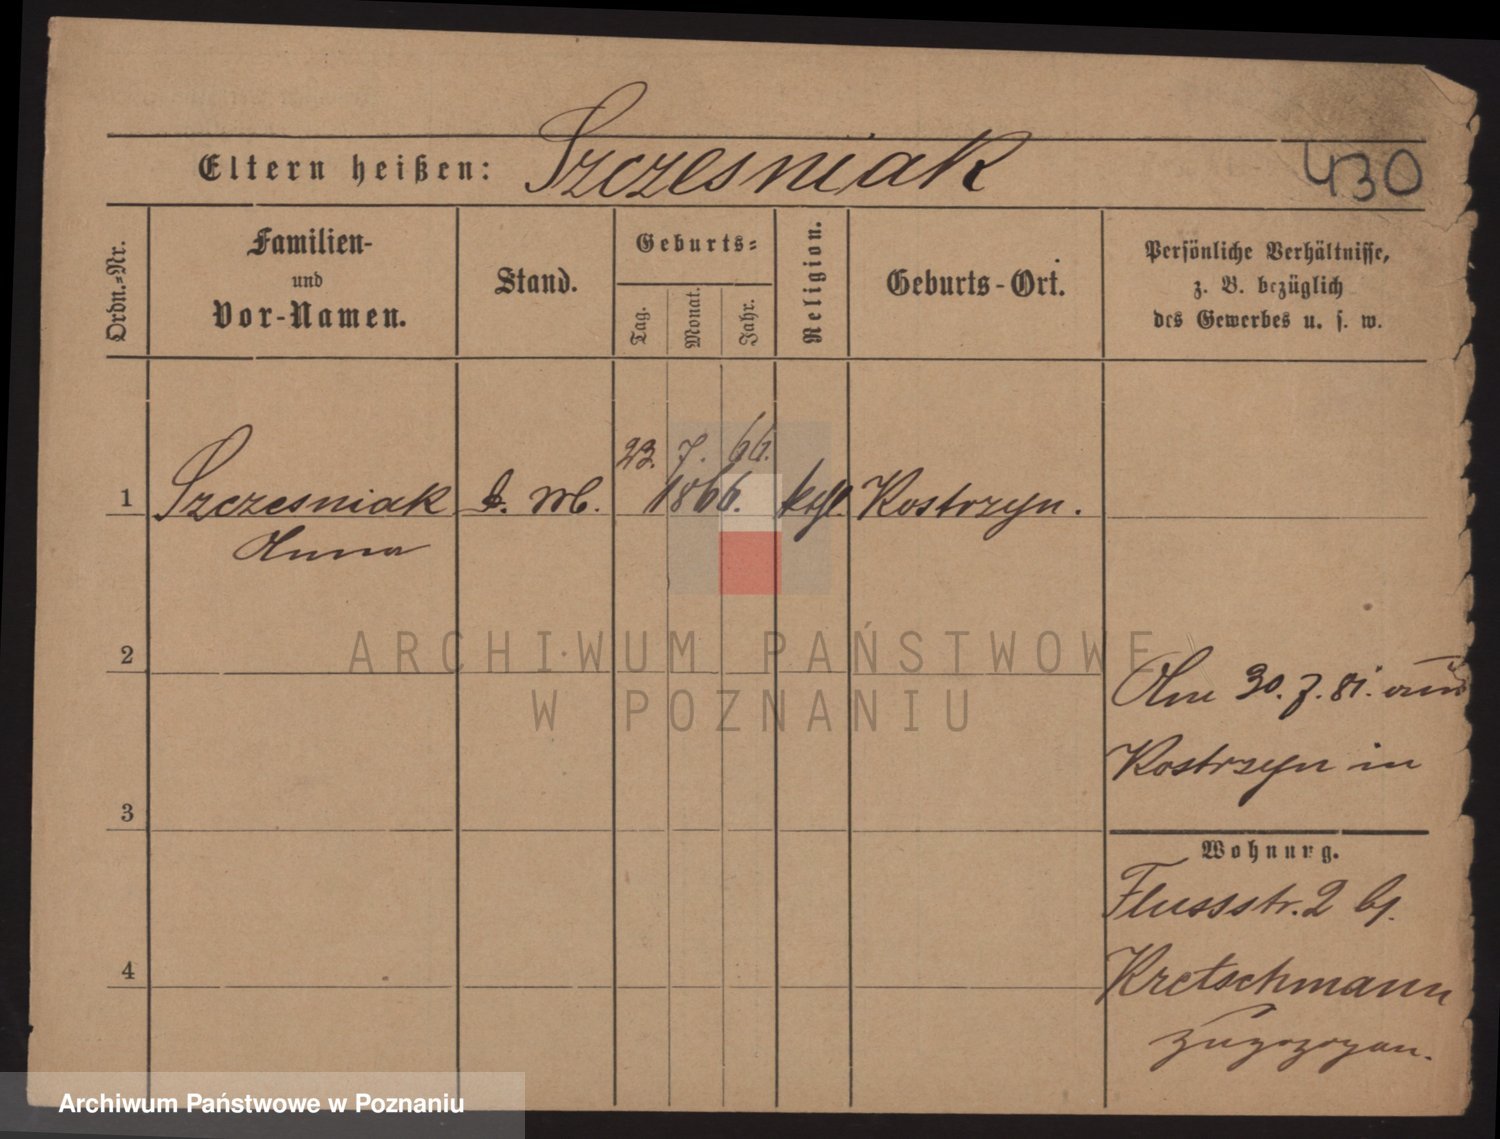 Eltern heißen: Szczesniak 430
Ordn.-Nr.
Familien-
und
Vor-Namen.
Stand.
Geburts-
Tag.
Monat.
Jahr.
Religion.
Geburts-Ort.
Persönliche Verhältnisse,
z. B. bezüglich
des Gewerbes u. s. w.
23. 7. 66.
1 Szczesniak d. M. 1866. kthl. Kostrzyn.
Anna
2
ARCHIWUM PAŃSTWOWE
W POZNANIU
Am 30. 7. 81. aus
Kostrzyn in
3
Wohnung.
Flussstr. 2 bj.
Kretschmann
4
zugezogen.
Archiwum Państwowe w Poznaniu